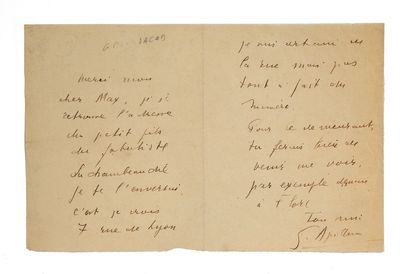 JACOB
Merci mon
cher Max, je
retrouve l'adresse
du petit fils
du fabuliste
Lachambeaudie
je te l'enverrai.
c'est je crois
7 rue de Lyon
je suis certain de
la rue mais pas
tout à fait du
numéro.
Pour le demeurant,
tu ferais bien de
venir me voir,
par exemple demain
à Flore
Ton ami
G. Apollin